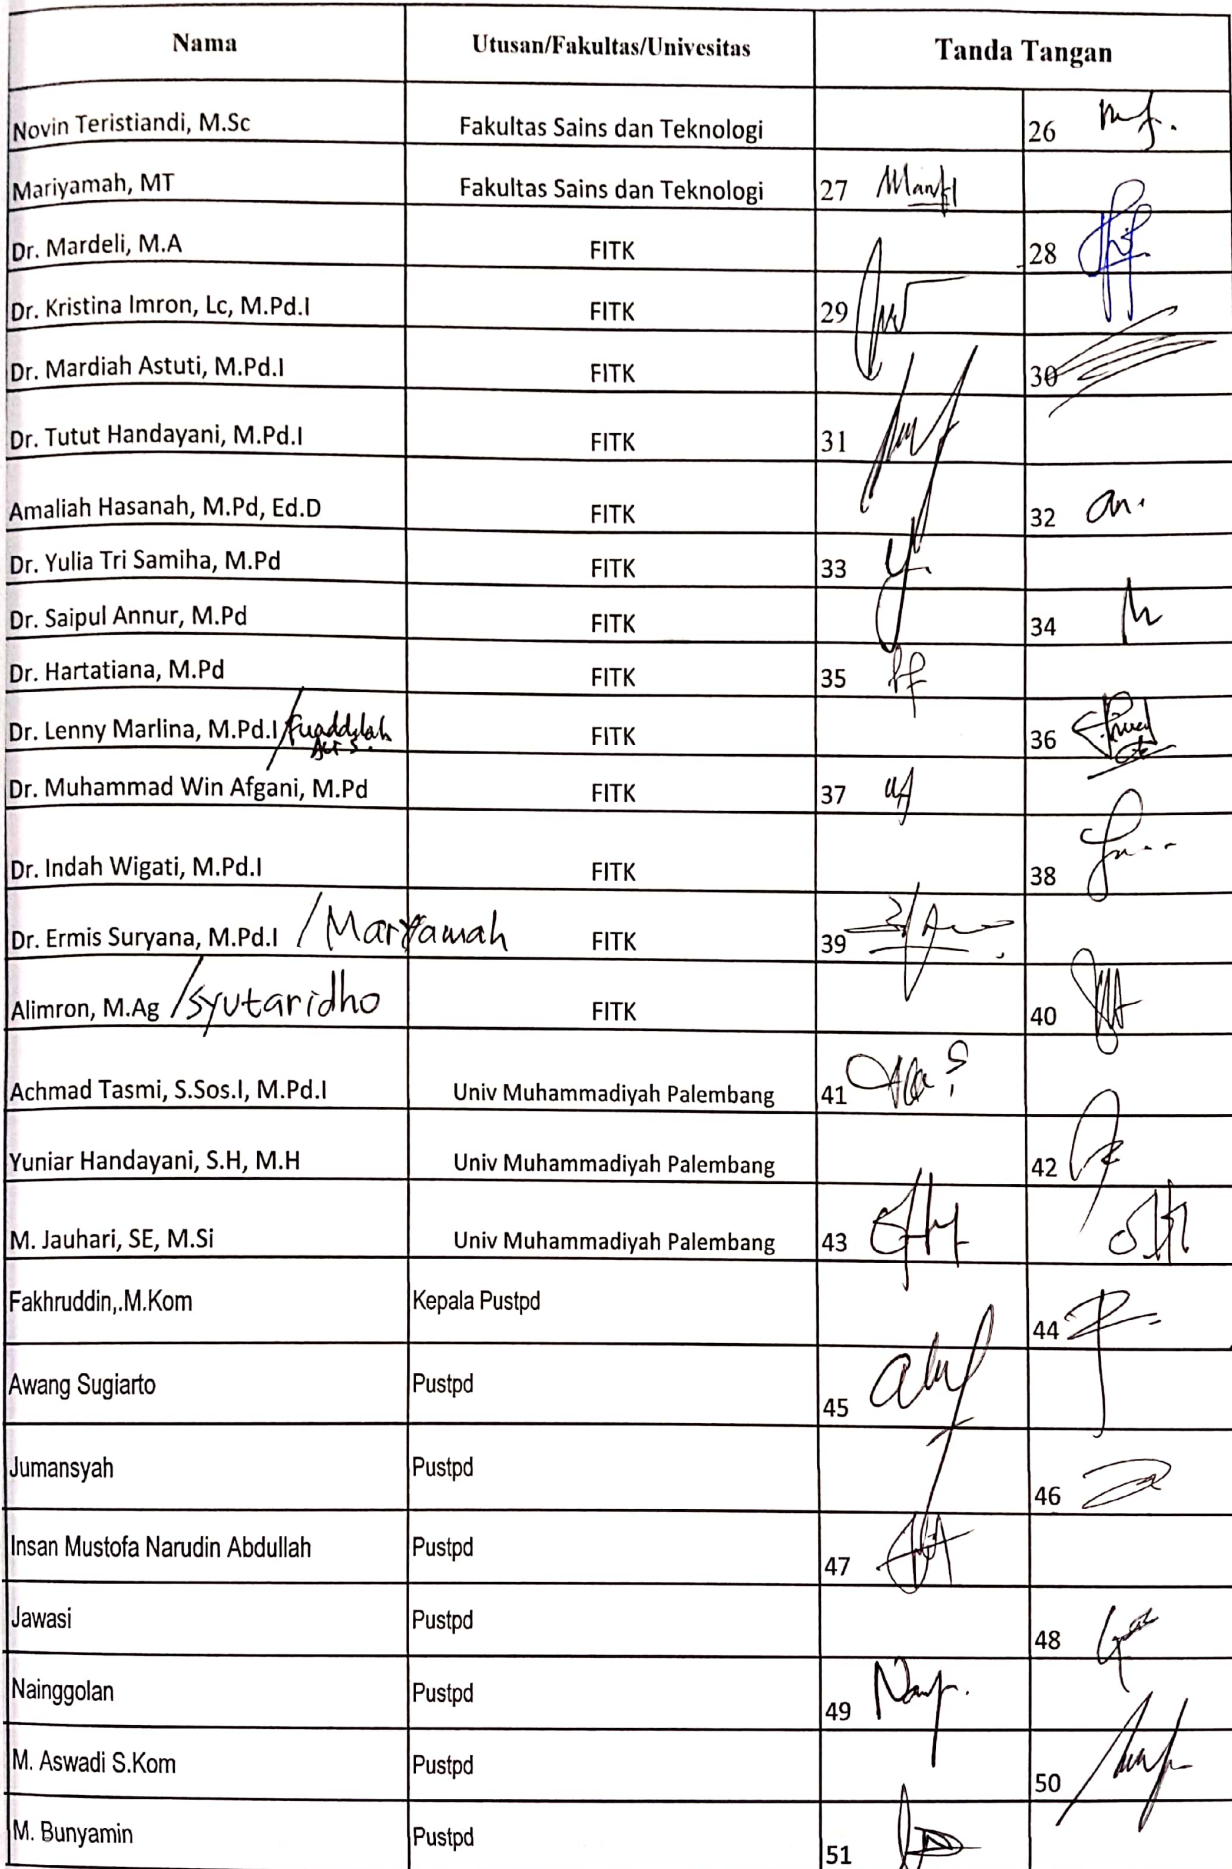 Nama Utusan/Fakultas/Univesitas Tanda Tangan
Novin Teristiandi, M.Sc Fakultas Sains dan Teknologi 26
Mariyamah, MT Fakultas Sains dan Teknologi 27
Dr. Mardeli, M.A FITK 28
Dr. Kristina Imron, Lc, M.Pd.I FITK 29
Dr. Mardiah Astuti, M.Pd.I FITK 30
Dr. Tutut Handayani, M.Pd.I FITK 31
Amaliah Hasanah, M.Pd, Ed.D FITK 32
Dr. Yulia Tri Samiha, M.Pd FITK 33
Dr. Saipul Annur, M.Pd FITK 34
Dr. Hartatiana, M.Pd FITK 35
Dr. Lenny Marlina, M.Pd.I / FITK 36
Dr. Muhammad Win Afgani, M.Pd FITK 37
Dr. Indah Wigati, M.Pd.I FITK 38
Dr. Ermis Suryana, M.Pd.I /Maryamah FITK 39
Alimron, M.Ag /Syutaridho FITK 40
Achmad Tasmi, S.Sos.I, M.Pd.I Univ Muhammadiyah Palembang 41
Yuniar Handayani, S.H, M.H Univ Muhammadiyah Palembang 42
M. Jauhari, SE, M.Si Univ Muhammadiyah Palembang 43
Fakhruddin,.M.Kom Kepala Pustpd 44
Awang Sugiarto Pustpd 45
Jumansyah Pustpd 46
Insan Mustofa Narudin Abdullah Pustpd 47
Jawasi Pustpd 48
Nainggolan Pustpd 49
M. Aswadi S.Kom Pustpd 50
M. Bunyamin Pustpd 51